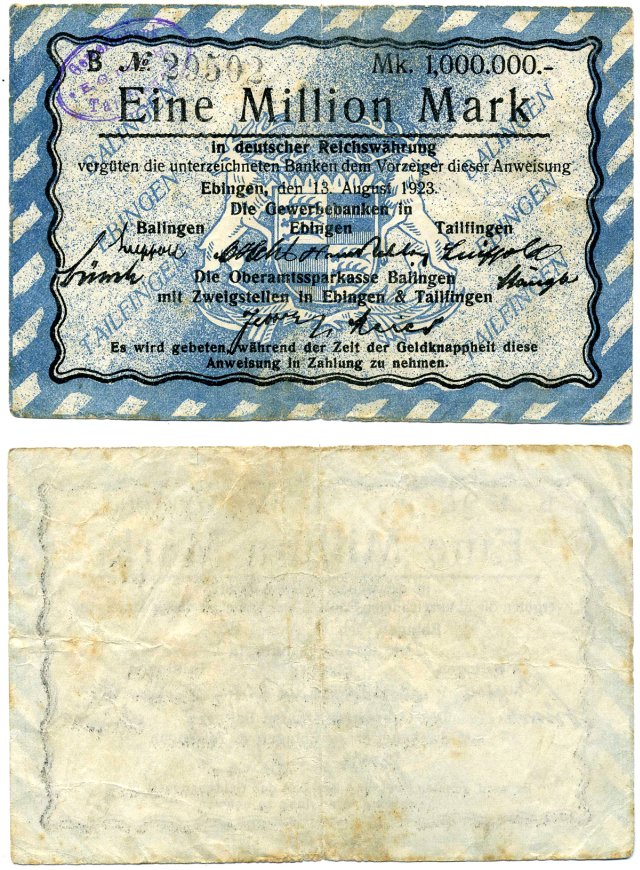 B № 29502 Mk. 1,000.000.-
Eine Million Mark
in deutscher Reichswährung
vergüten die unterzeichneten Banken dem Vorzeiger dieser Anweisung
Ebingen, den 13. August 1923.
Die Gewerbebanken in
Balingen Ebingen Tailfingen
Die Oberamtssparkasse Balingen
mit Zweigstellen in Ebingen & Tailfingen
Es wird gebeten, während der Zeit der Geldknappheit diese
Anweisung in Zahlung zu nehmen.
BALINGEN
EBINGEN
TAILFINGEN
BALINGEN
EBINGEN
TAILFINGEN